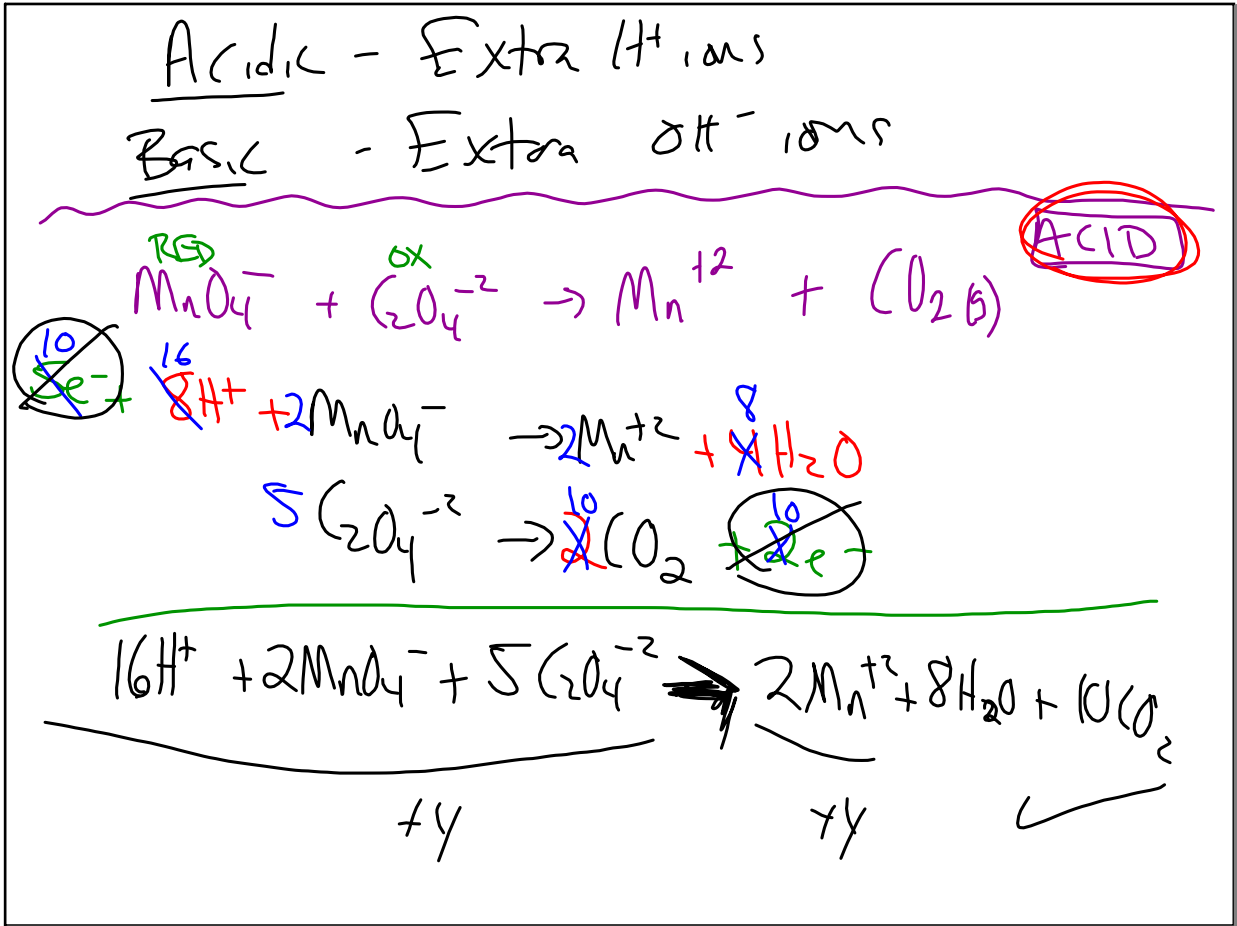 Acidic - Extra H⁺ ions
Basic - Extra OH⁻ ions
ACID
RED OX
MnO₄⁻ + C₂O₄⁻² → Mn⁺² + CO₂(g)
10 16 8
5e⁻ + 8H⁺ + 2MnO₄⁻ → 2Mn⁺² + 4H₂O
10 10
5C₂O₄⁻² → 2CO₂ + 2e⁻
16H⁺ + 2MnO₄⁻ + 5C₂O₄⁻² → 2Mn⁺² + 8H₂O + 10CO₂
+4 +4